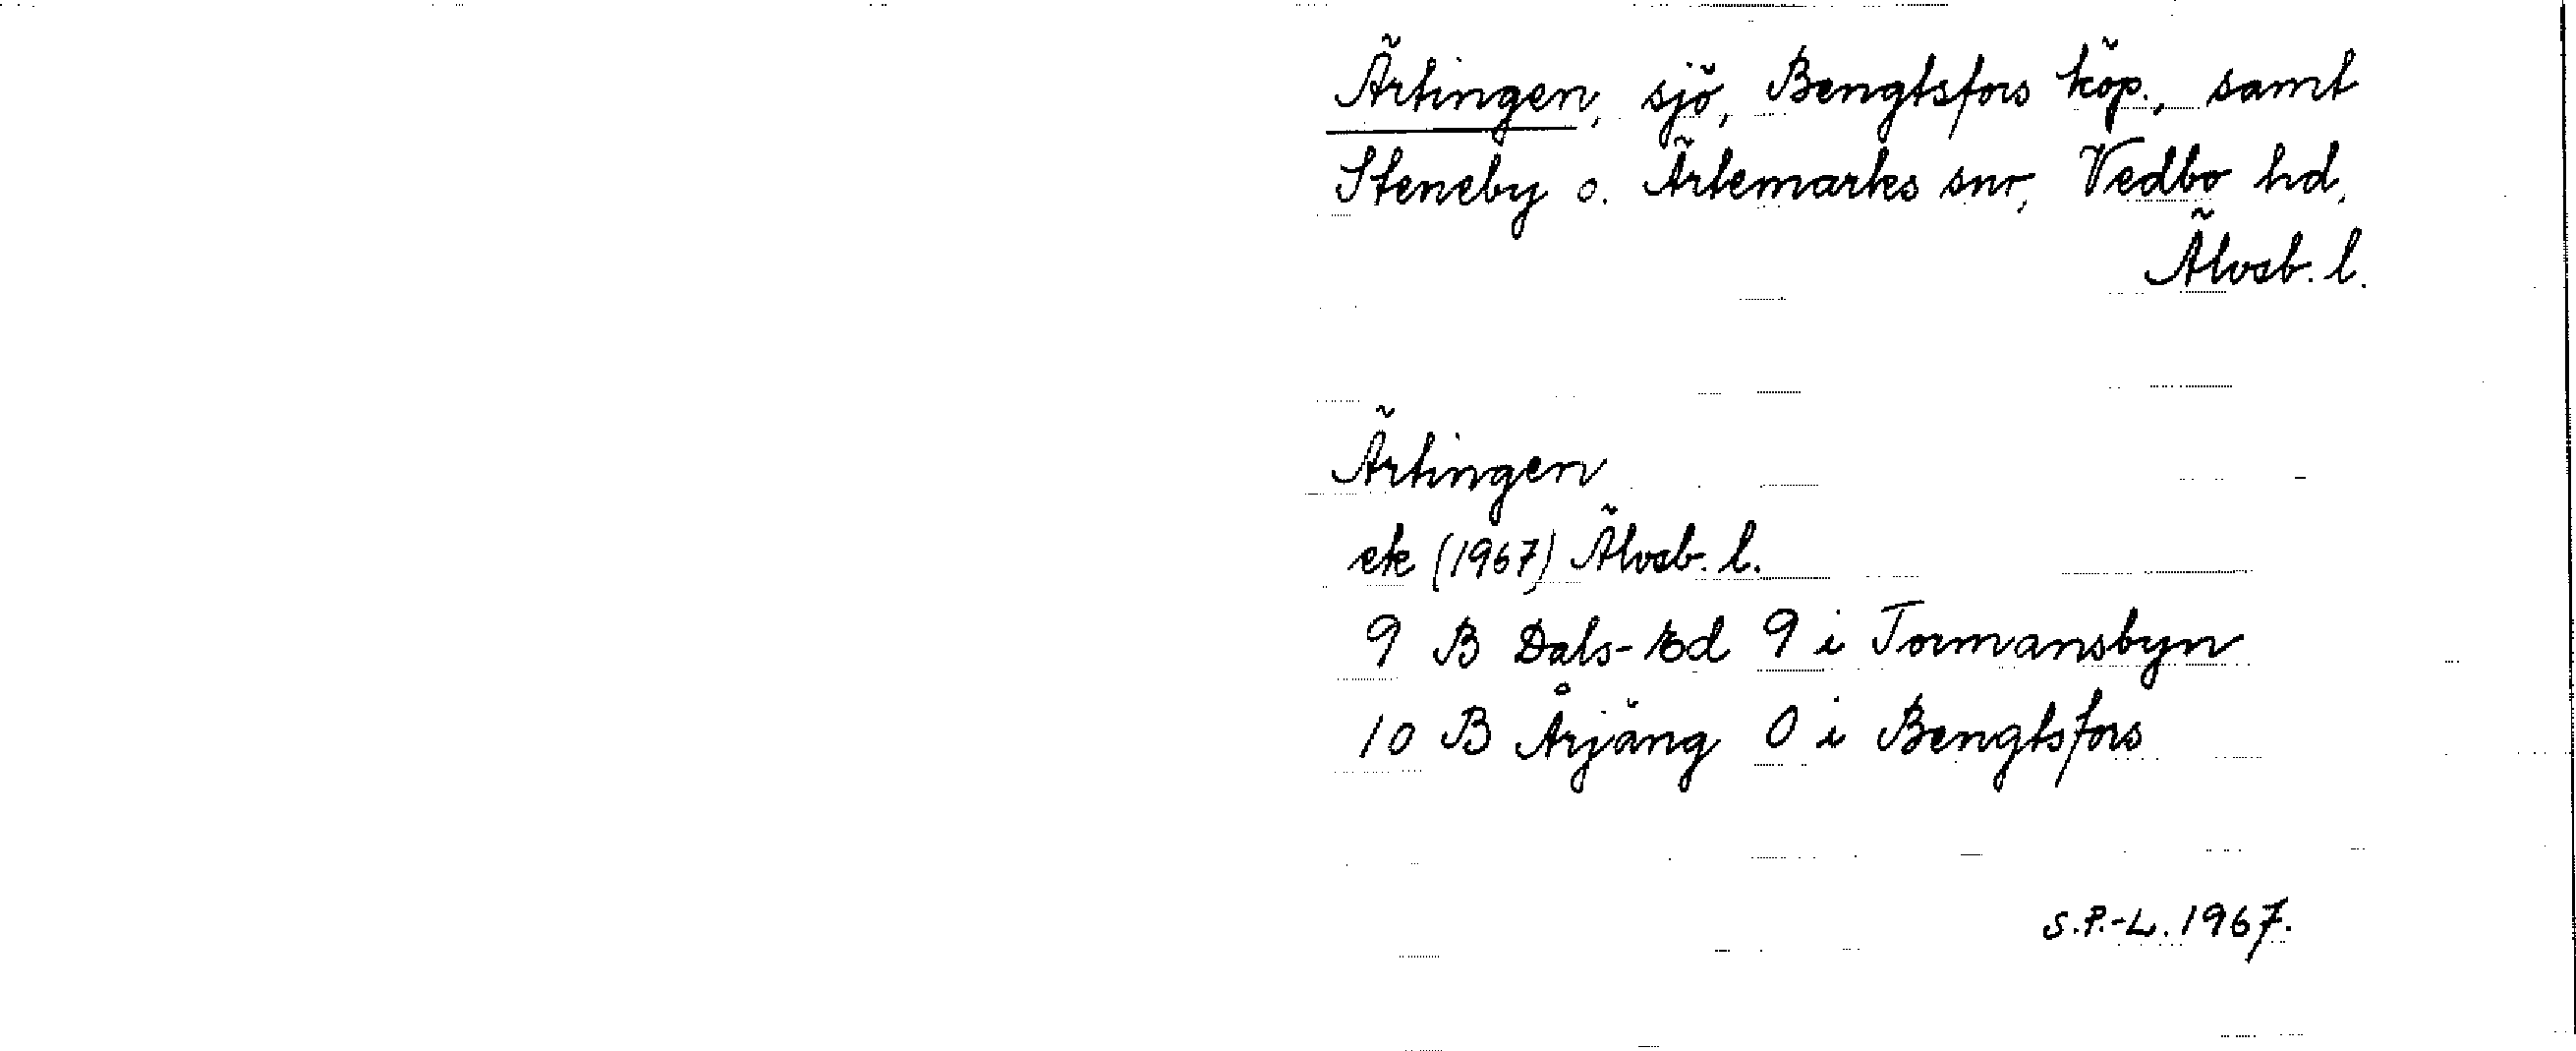 Ärtingen, sjö, Bengtsfors köp., samt
Steneby o. Ärtemarks snr, Vedbo hd,
Älvsb. l.
Ärtingen
ek (1967) Älvsb. l.
9 B Dals-Ed 9 i Tormansbyn
10 B Årjäng 0 i Bengtsfors
S.P.-L. 1967.